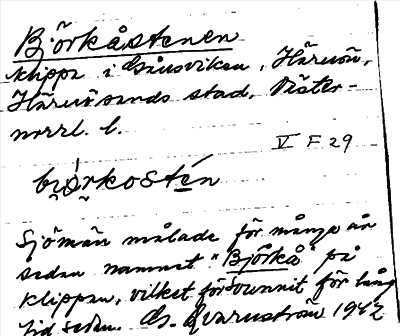 Björkåstenen
klippa i Gånsviken, Härnön,
Härnösands stad, Väster-
norrl. l.
V F 29
bjørkostén
Sjömän målade för många år
sedan namnet "Björkå" på
klippan, vilket försvunnit för lång
tid sedan. G. Qvarnström 1942